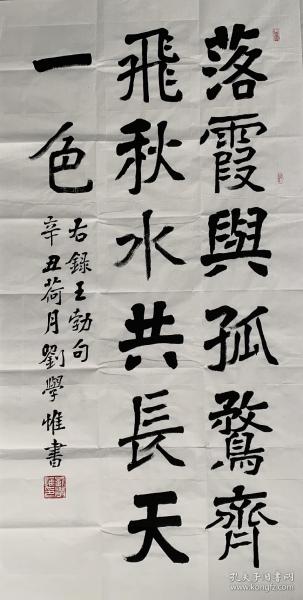 落霞與孤鶩齊
飛秋水共長天
一色
右錄王勃句
辛丑荷月劉學惟書
孔夫子旧书网